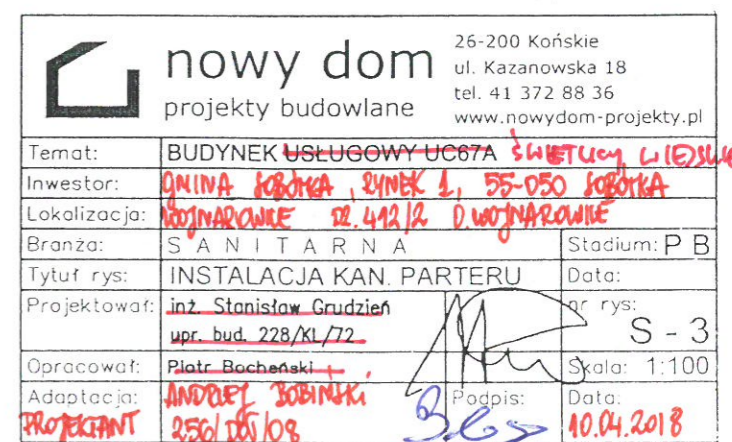 nowy dom
projekty budowlane
26-200 Końskie
ul. Kazanowska 18
tel. 41 372 88 36
www.nowydom-projekty.pl
Temat: BUDYNEK USŁUGOWY UC67A ŚWIETLICY WIEJSKIEJ
Inwestor: GMINA SOBÓTKA, RYNEK 1, 55-050 SOBÓTKA
Lokalizacja: WOJNAROWICE DZ. 412/2 O. WOJNAROWICE
Branża: SANITARNA Stadium: PB
Tytuł rys: INSTALACJA KAN. PARTERU Data:
Projektował: inż. Stanisław Grudzień nr rys:
upr. bud. 228/KL/72 S - 3
Opracował: Piotr Bocheński Skala: 1:100
Adaptacja: ANDRZEJ BOBIŃSKI Podpis: Data:
PROJEKTANT 256/DOŚ/08 10.04.2018